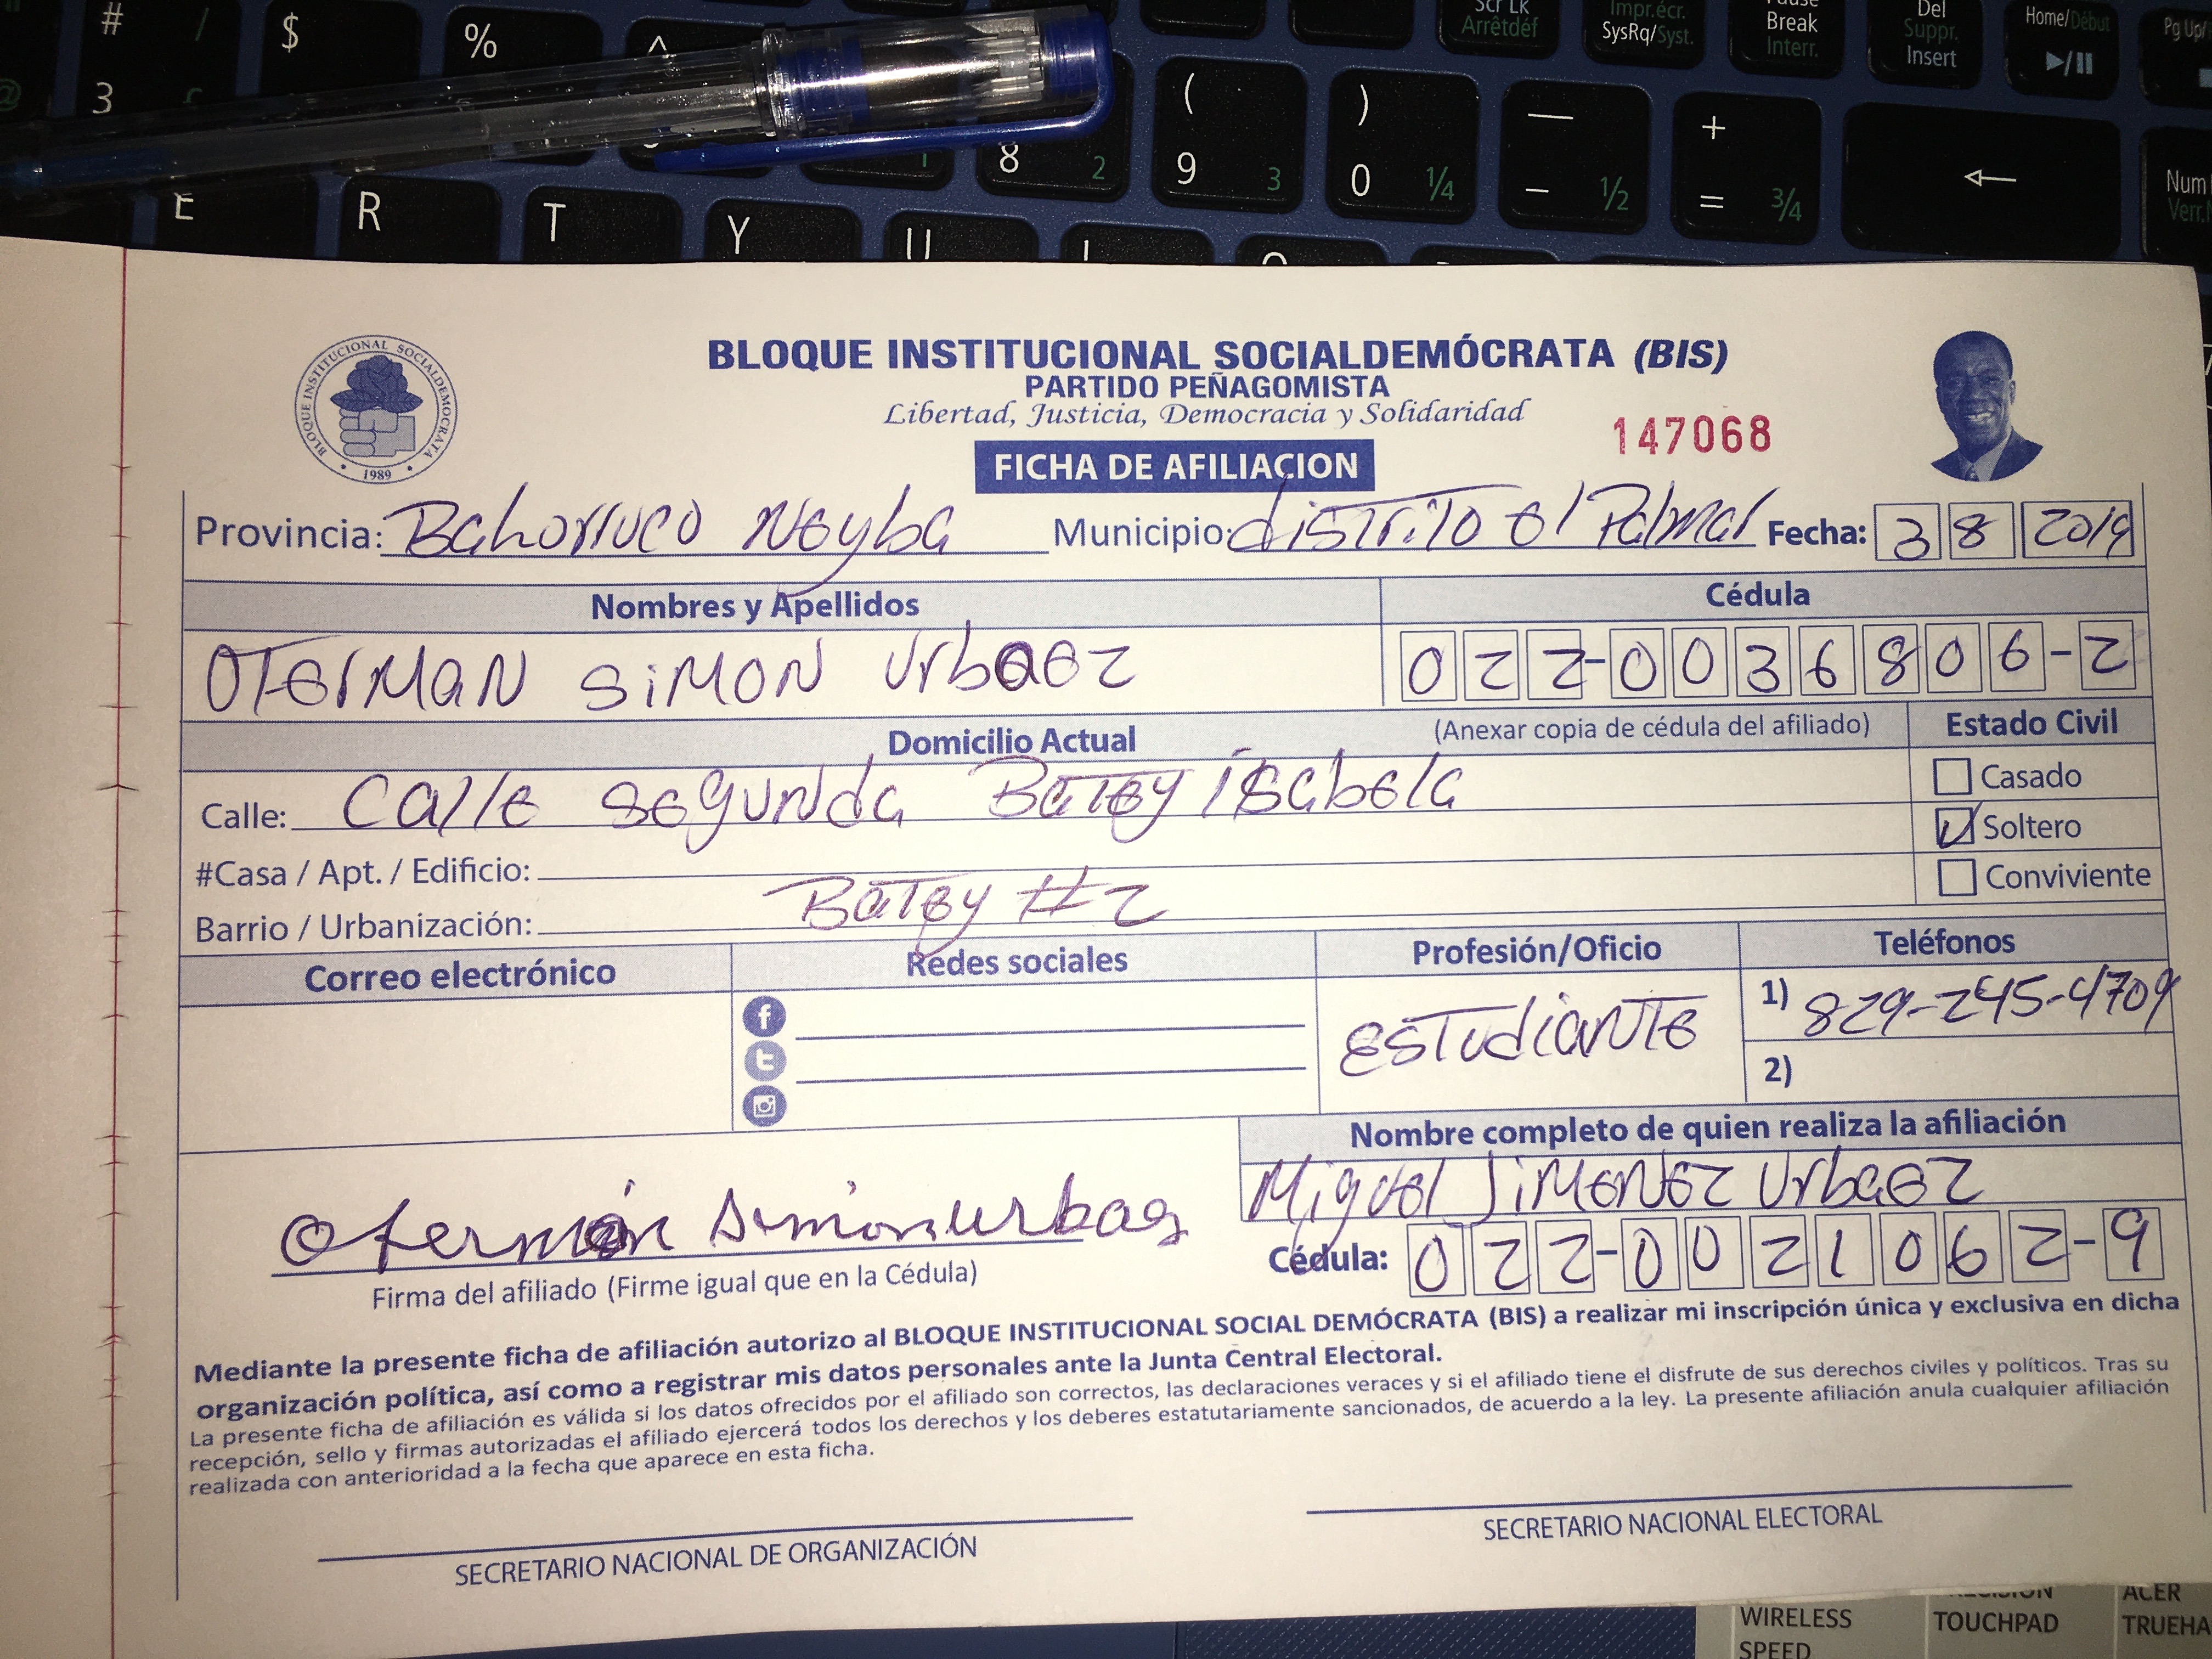 # $ % ^ Scr Lk Arrêtdéf Impr.écr. SysRq/Syst. Pause Break Interr. Del Suppr. Insert Home/Début Pg Up/
3 8 2 ( 9 3 ) 0 1/4 — - 1/2 + = 3/4 Num
E R T Y U
BLOQUE INSTITUCIONAL SOCIALDEMÓCRATA
1989
BLOQUE INSTITUCIONAL SOCIALDEMÓCRATA (BIS)
PARTIDO PEÑAGOMISTA
Libertad, Justicia, Democracia y Solidaridad
147068
FICHA DE AFILIACION
Provincia: Bahorruco Neyba Municipio: distrito el Palmar Fecha: 3 8 2019
Nombres y Apellidos Cédula
OTerMaN SiMON Urbaez 022-0036806-2
Domicilio Actual (Anexar copia de cédula del afiliado) Estado Civil
Calle: Calle segunda Batey isabela
Casado
Soltero
Conviviente
#Casa / Apt. / Edificio:
Barrio / Urbanización: Batey #2
Correo electrónico Redes sociales Profesión/Oficio Teléfonos
estudiante 1) 829-245-4709
2)
Nombre completo de quien realiza la afiliación
Miguel JiMeNez Urbaez
Oterman Simon urbaes
Cédula: 022-0021062-9
Firma del afiliado (Firme igual que en la Cédula)
Mediante la presente ficha de afiliación autorizo al BLOQUE INSTITUCIONAL SOCIAL DEMÓCRATA (BIS) a realizar mi inscripción única y exclusiva en dicha
organización política, así como a registrar mis datos personales ante la Junta Central Electoral.
La presente ficha de afiliación es válida si los datos ofrecidos por el afiliado son correctos, las declaraciones veraces y si el afiliado tiene el disfrute de sus derechos civiles y políticos. Tras su
recepción, sello y firmas autorizadas el afiliado ejercerá todos los derechos y los deberes estatutariamente sancionados, de acuerdo a la ley. La presente afiliación anula cualquier afiliación
realizada con anterioridad a la fecha que aparece en esta ficha.
SECRETARIO NACIONAL DE ORGANIZACIÓN
SECRETARIO NACIONAL ELECTORAL
WIRELESS
SPEED
TOUCHPAD
ACER